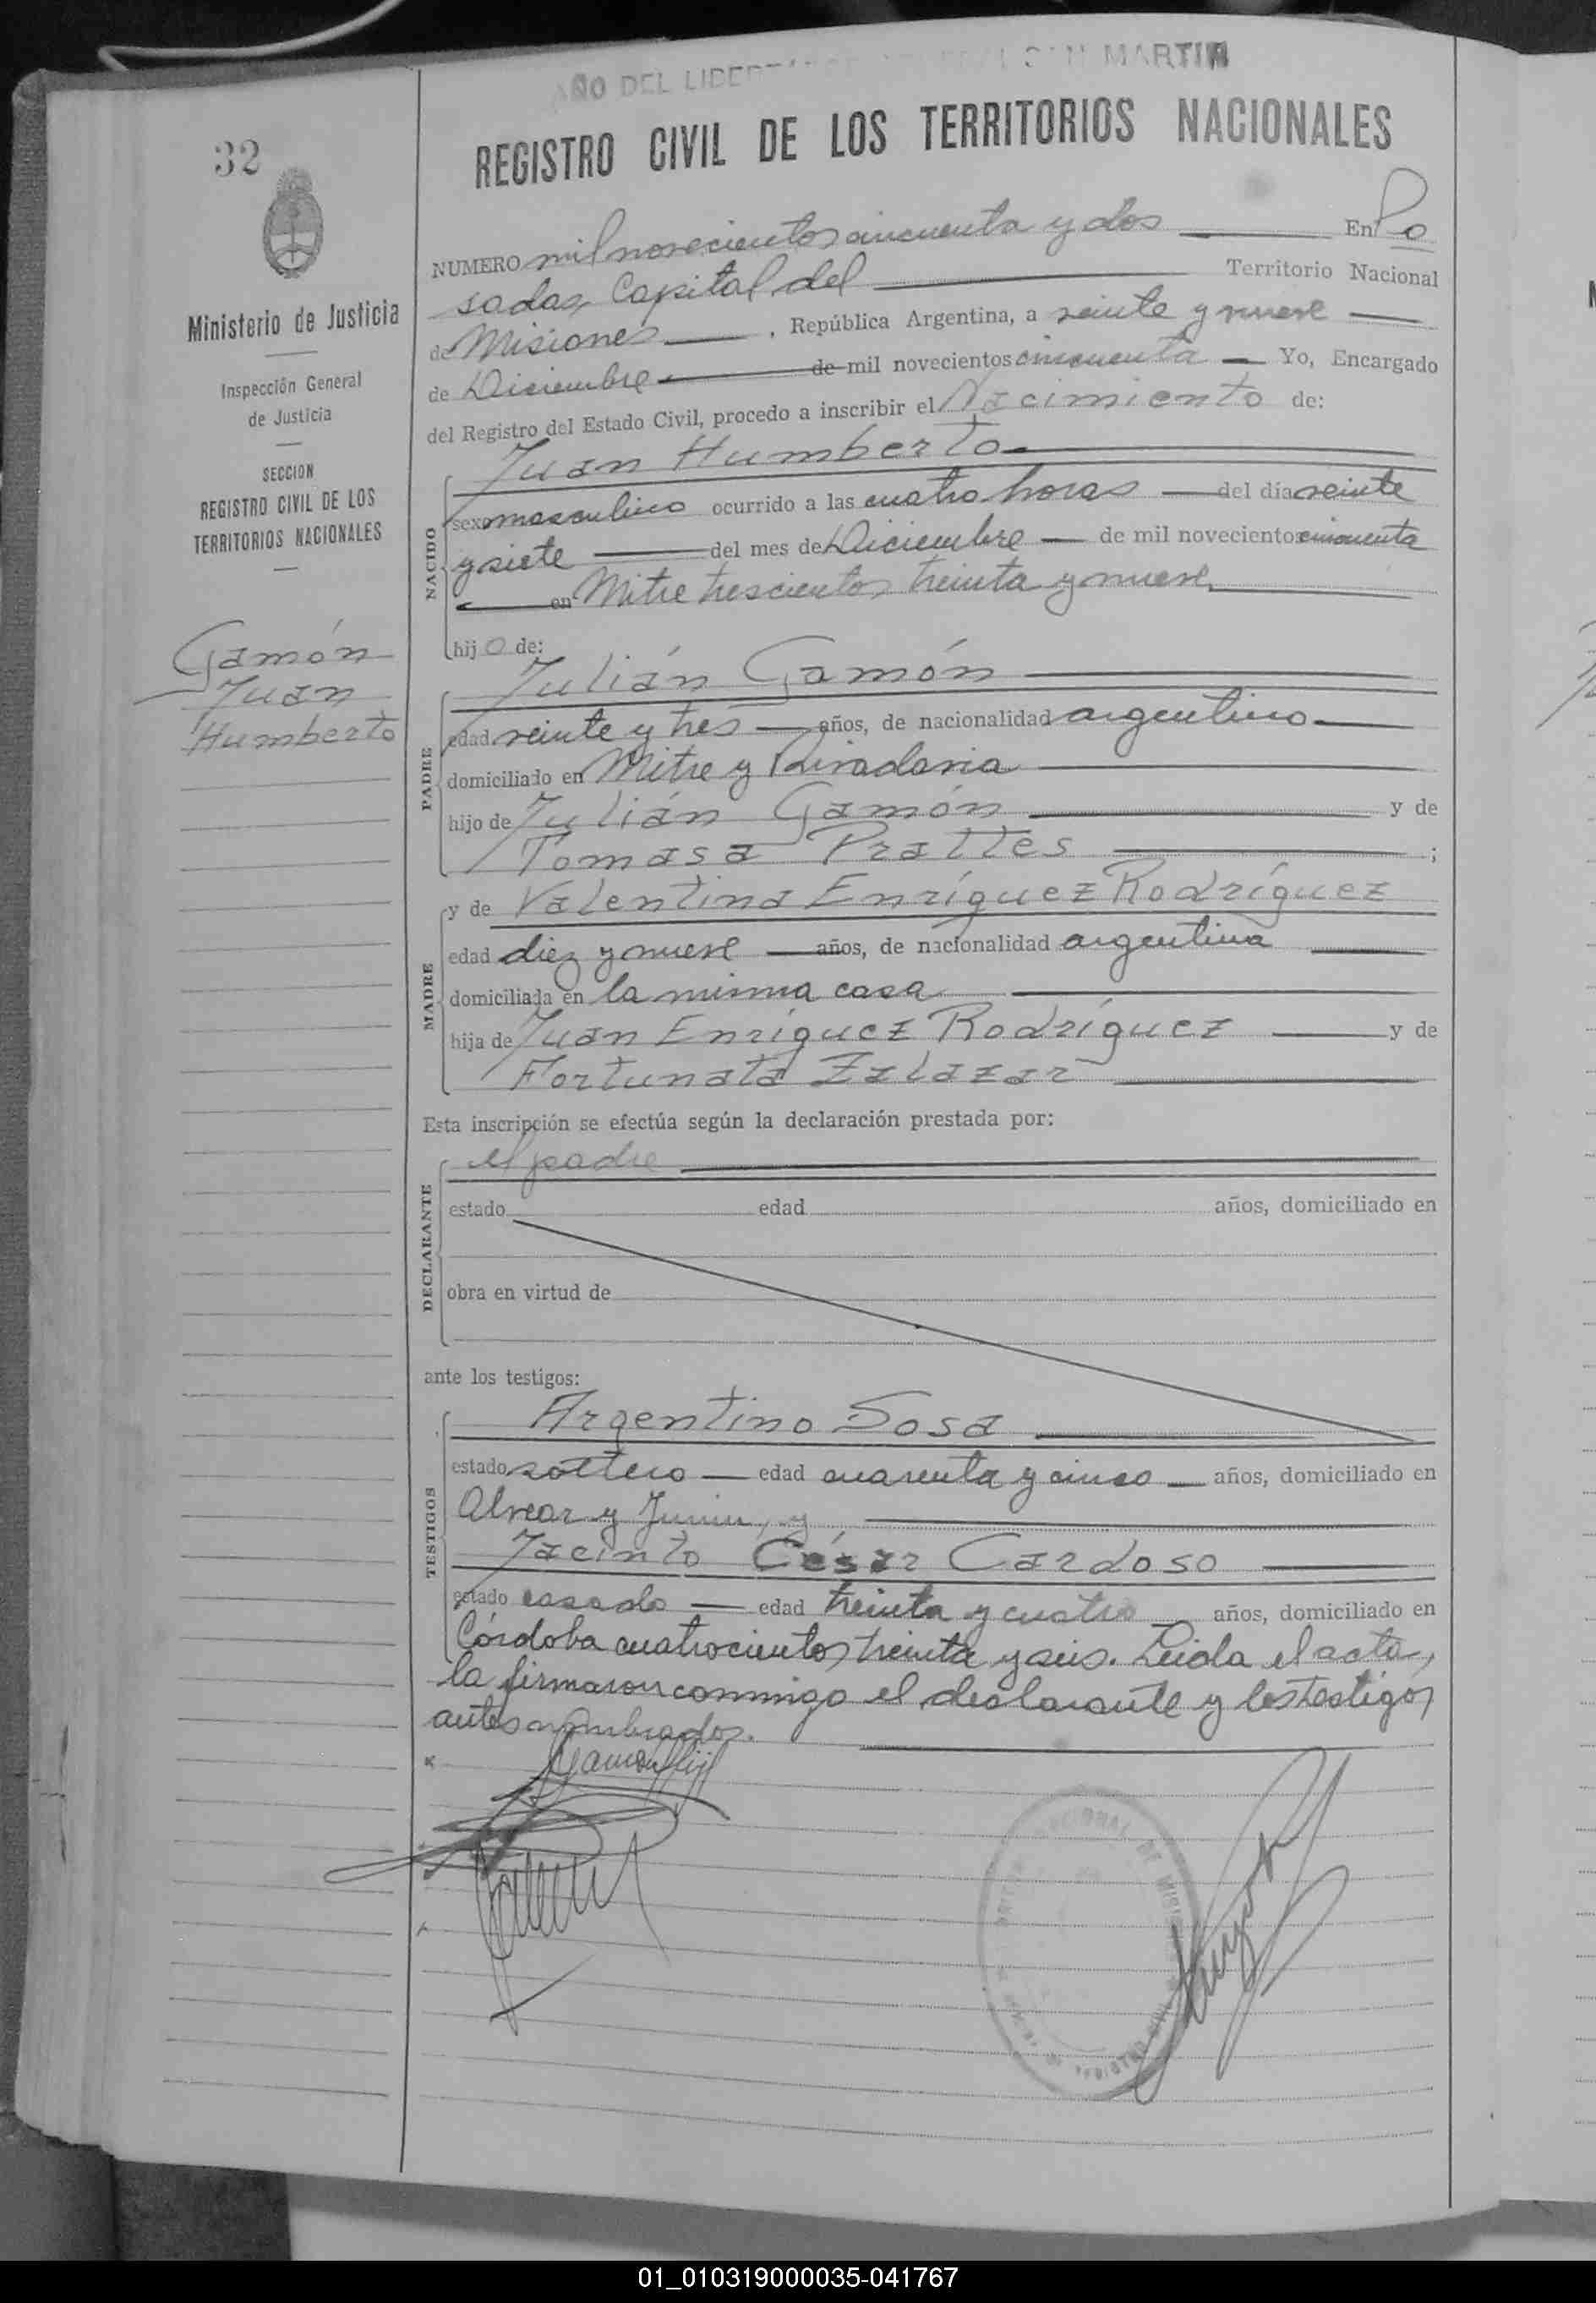 AÑO DEL LIBERTADOR GENERAL SAN MARTIN
REGISTRO CIVIL DE LOS TERRITORIOS NACIONALES
32
Ministerio de Justicia
Inspección General
de Justicia
SECCION
REGISTRO CIVIL DE LOS
TERRITORIOS NACIONALES
Gamón
Juan
Humberto
NUMERO mil novecientos cincuenta y dos En Po
sadas, Capital del Territorio Nacional
de Misiones, República Argentina, a veinte y nueve
de Diciembre de mil novecientos cincuenta Yo, Encargado
del Registro del Estado Civil, procedo a inscribir el Nacimiento de:
NACIDO
Juan Humberto
sexo masculino ocurrido a las cuatro horas del día veinte
y siete del mes de Diciembre de mil novecientos cincuenta
en Mitre trescientos treinta y nueve
hijo de:
PADRE
Julián Gamón
edad veinte y tres años, de nacionalidad argentino
domiciliado en Mitre y Rivadavia
hijo de Julián Gamón y de
Tomasa Prattes ;
MADRE
y de Valentina Enríquez Rodríguez
edad diez y nueve años, de nacionalidad argentina
domiciliada en la misma casa
hija de Juan Enríquez Rodríguez y de
Fortunata Zalazar
Esta inscripción se efectúa según la declaración prestada por:
DECLARANTE
el padre
estado edad años, domiciliado en
obra en virtud de
ante los testigos:
TESTIGOS
Argentino Sosa
estado soltero edad cuarenta y cinco años, domiciliado en
Alvear y Junín, y
Jacinto César Cardoso
estado casado edad treinta y cuatro años, domiciliado en
Córdoba cuatrocientos treinta y seis. Leida el acta,
la firmaron conmigo el declarante y los testigos
antes nombrados.
Gamón (hijo)
01_010319000035-041767